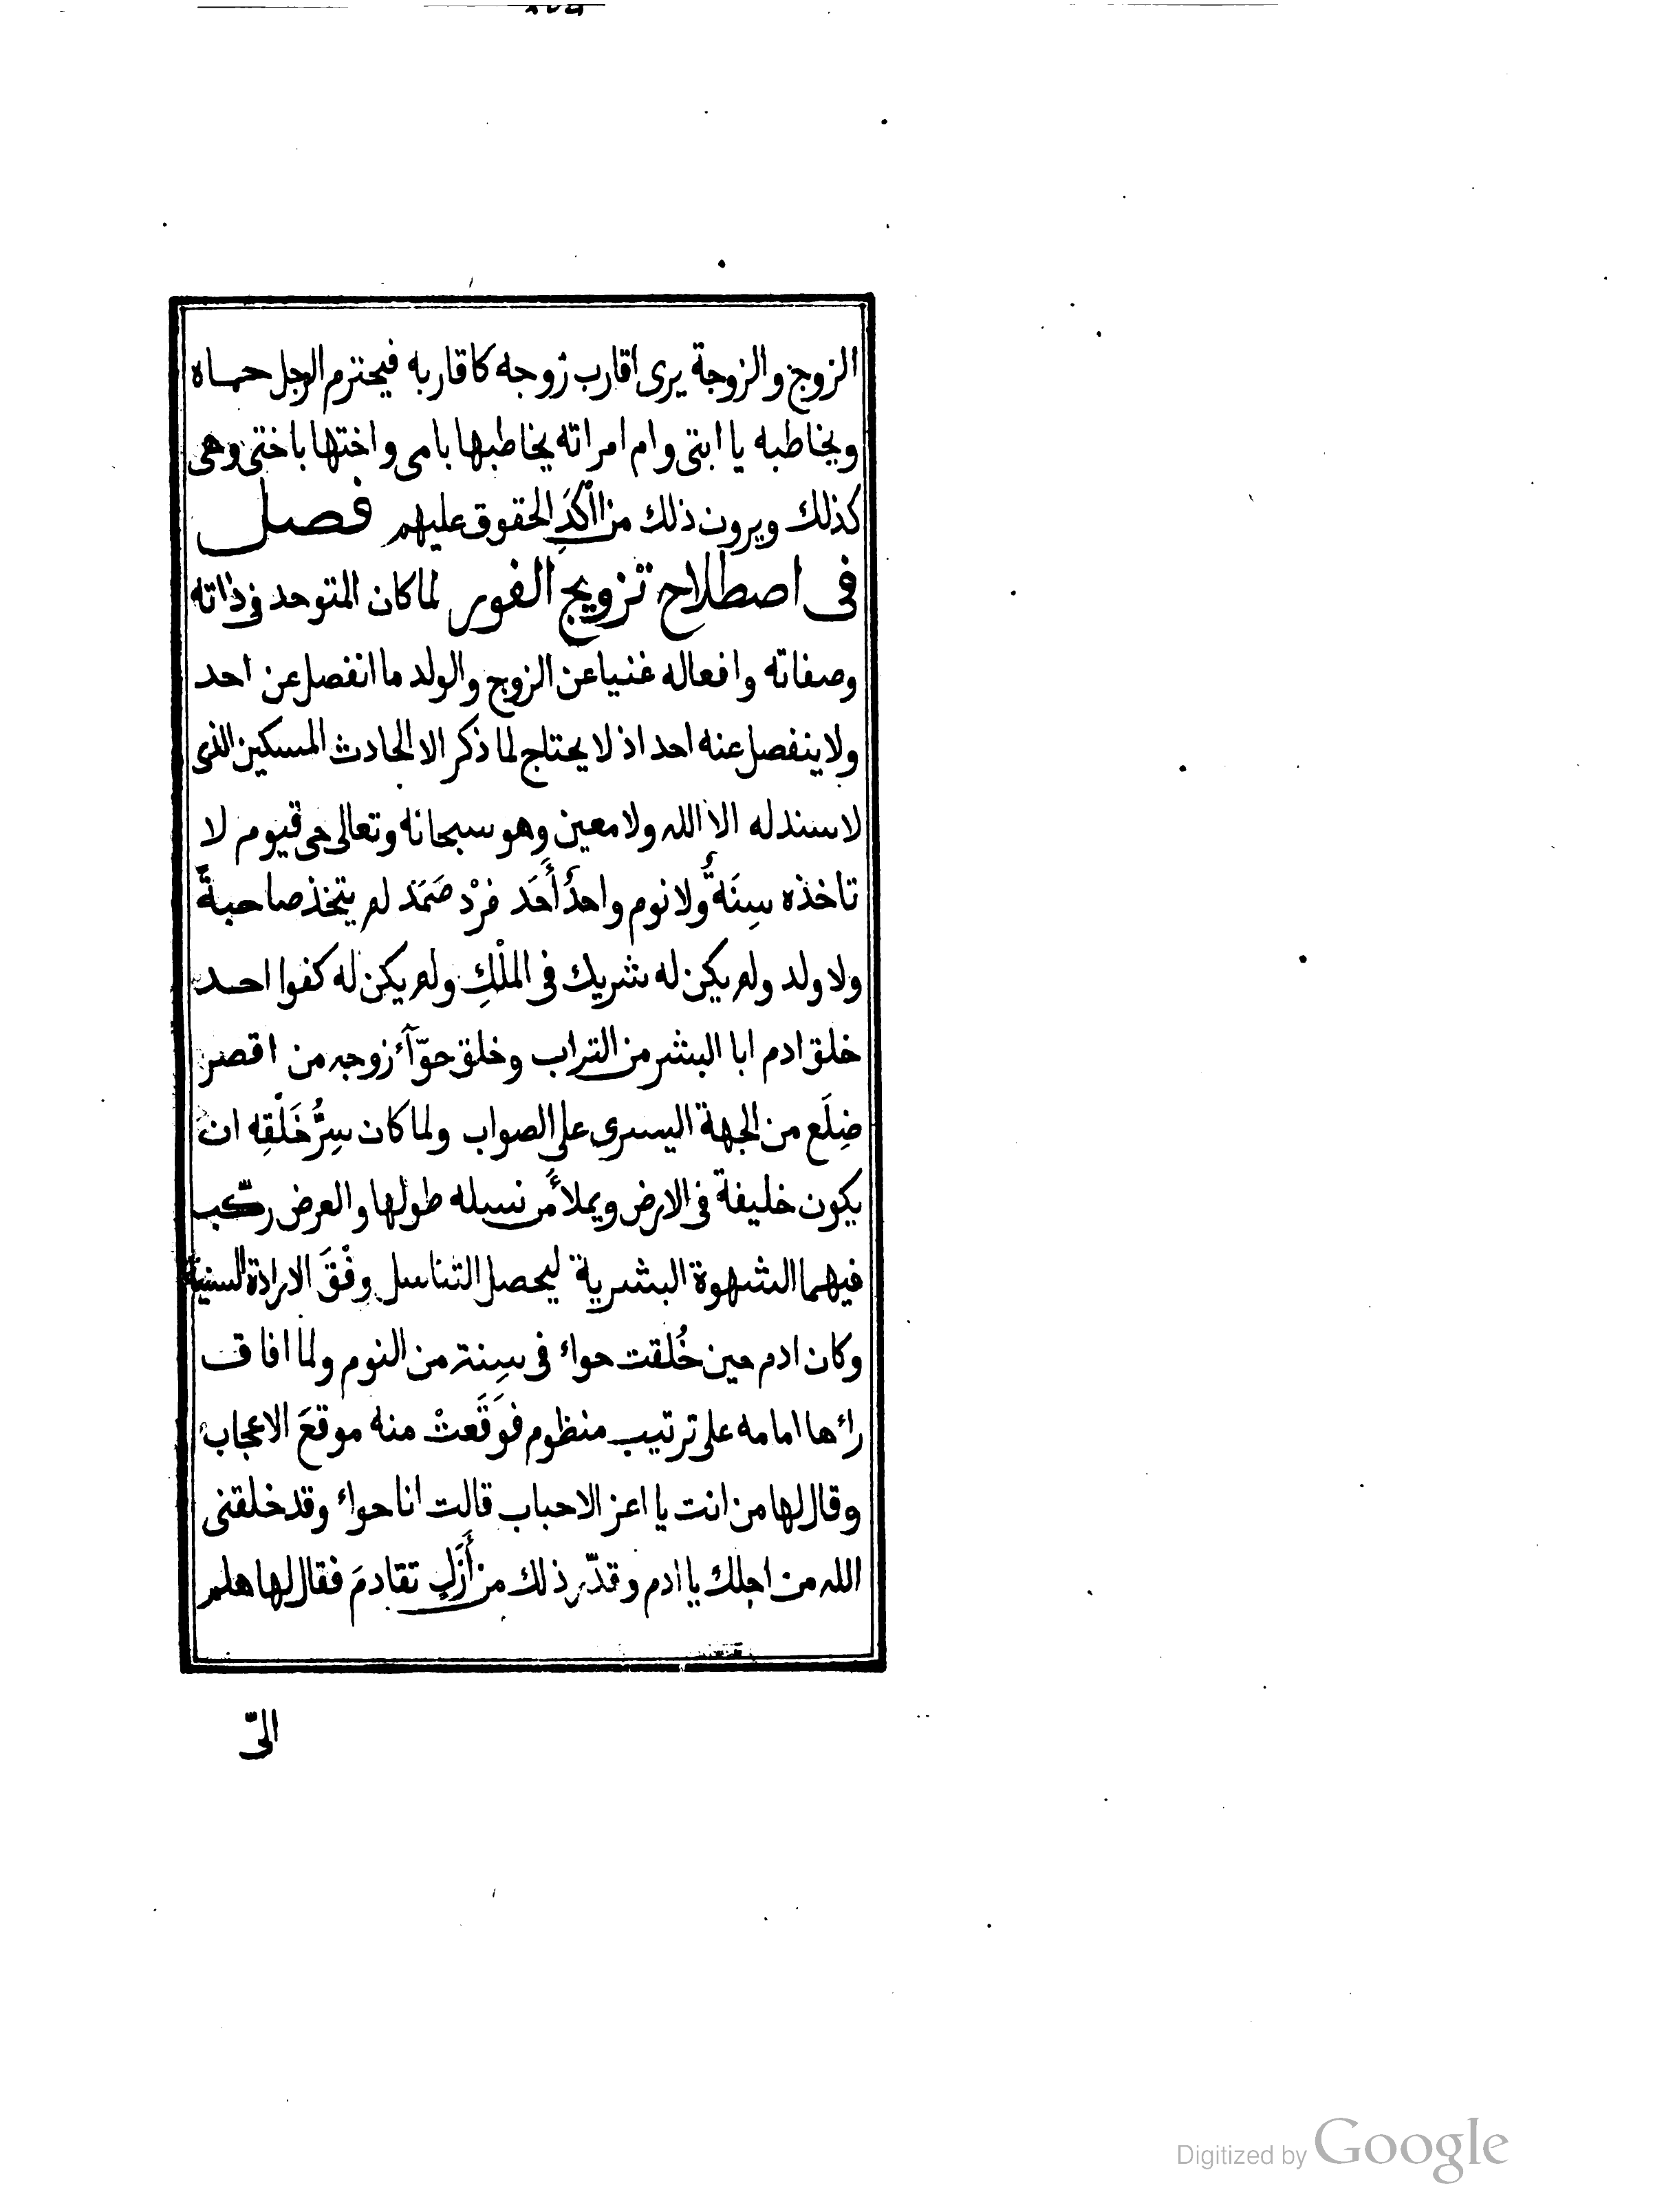 الزوج والزوجة يرى اقارب زوجه كاقاربه فيحترم الرجل حماه
ويخاطبه يا ابتى وام امراته يخاطبها بامى واختها باختى وهى
كذلك ويرون ذلك من اٰكَدِ الحقوق عليهم فصل
فى اصطلاح تزويج الفور لما كان المتوحد فى ذاته
وصفاته وافعاله غنيا عن الزوج والولد ما انفصل عن احد
ولا ينفصل عنه احد اذ لا يحتاج لما ذكر الا الحادث المسكين الذى
لا سند له الا الله ولا معين وهو سبحانه وتعالى حى قيوم لا
تاخذه سِنَةٌ ولا نوم واحدٌ أَحَد فرْد صَمَد لم يتخذ صاحبةً
ولا ولد ولم يكن له شريك فى الملْكِ ولم يكن له كفوا احد
خلق ادم ابا البشر من التراب وخلق حوّآء زوجه من اقصر
ضِلَع من الجهة اليسرى على الصواب ولما كان سِرُّ خَلْقِه ان
يكون خليفة فى الارض ويملأَ من نسله طولها والعرض ركّب
فيهما الشهوة البشرية ليحصل التناسل وفْقَ الارادة السنية
وكان ادم حين خُلقت حواء فى سِنة من النوم ولما افاق
راءها امامه على ترتيب منظوم فوَقَعتْ منه موقعَ الاعجاب
وقال لها من انت يا اعز الاحباب قالت انا حواء وقد خلقنى
الله من اجلك يا ادم وقدّر ذلك من أَزَلٍ تقادمَ فقال لها هلم
الىّ
Digitized by Google